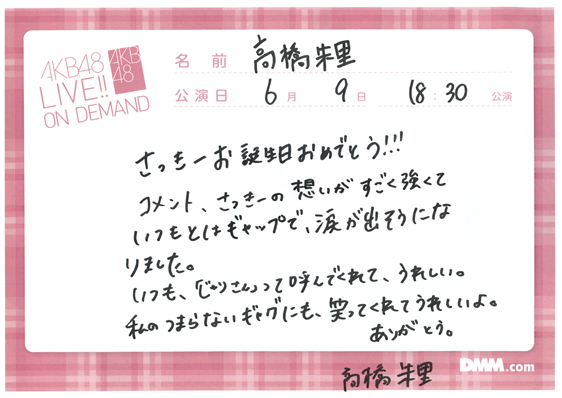 AKB48
LIVE!!
ON DEMAND
AKB
48
名前 高橋朱里
公演日 6月 9日 18:30 公演
さっきーお誕生日おめでとう!!!
コメント、さっきーの想いがすごく強くて
いつもとはギャップで、涙が出そうにな
りました。
いつも、「じゅりさん」って呼んでくれて、うれしい。
私のつまらないギャグにも、笑ってくれてうれしいよ。
ありがとう。
高橋朱里
DMM.com